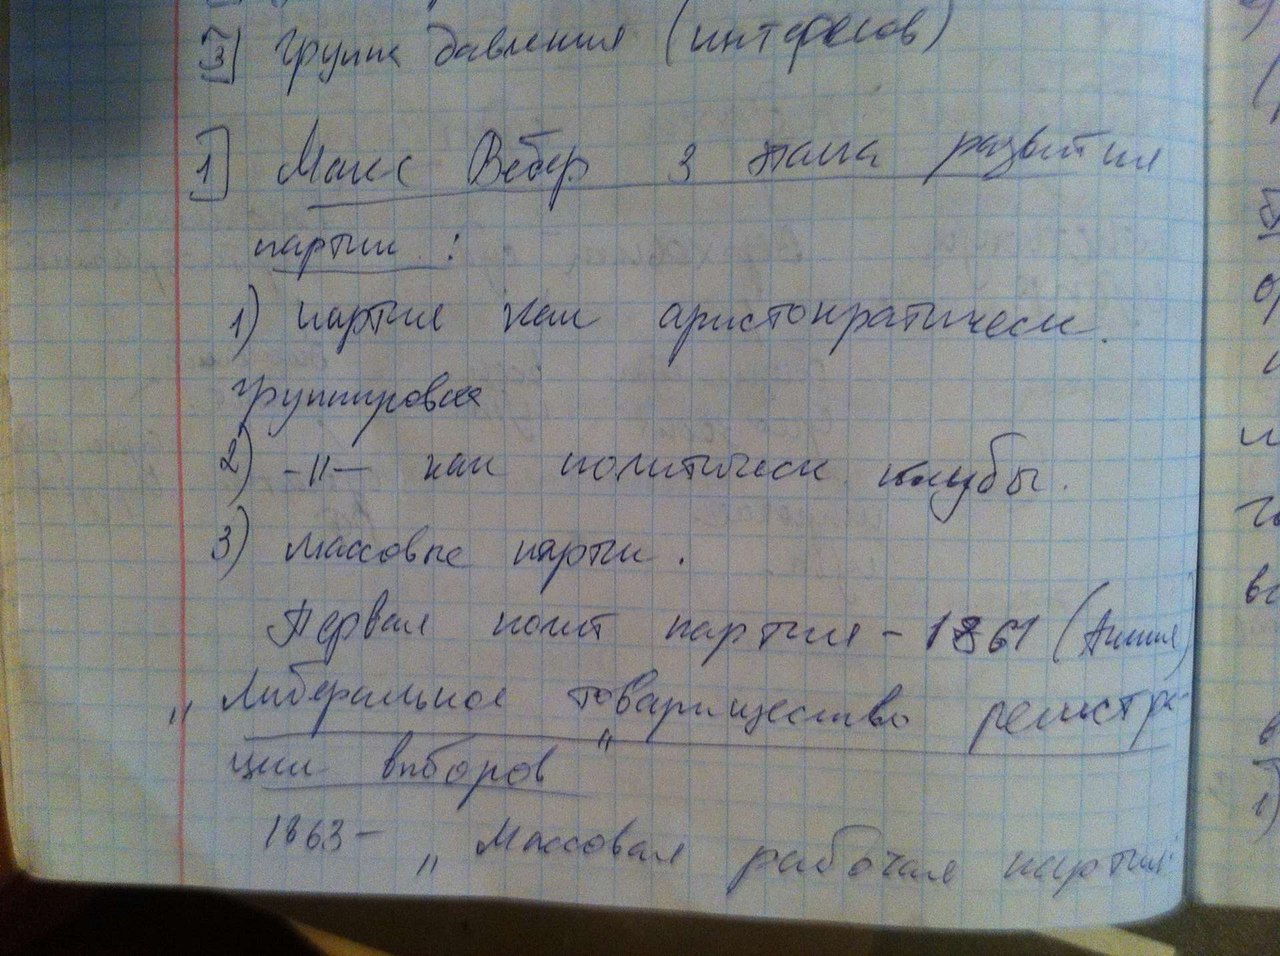 3] Группы давления (интересов)
1] Макс Вебер 3 этапа развития
партии :
1) партия как аристократическ.
группировка
2) -"- как политическ. клубы.
3) массовые партии.
Первая полит партия - 1861 (Англия)
„ Либеральное товарищество регистра
ции выборов "
1863 - „ Массовая рабочая партия